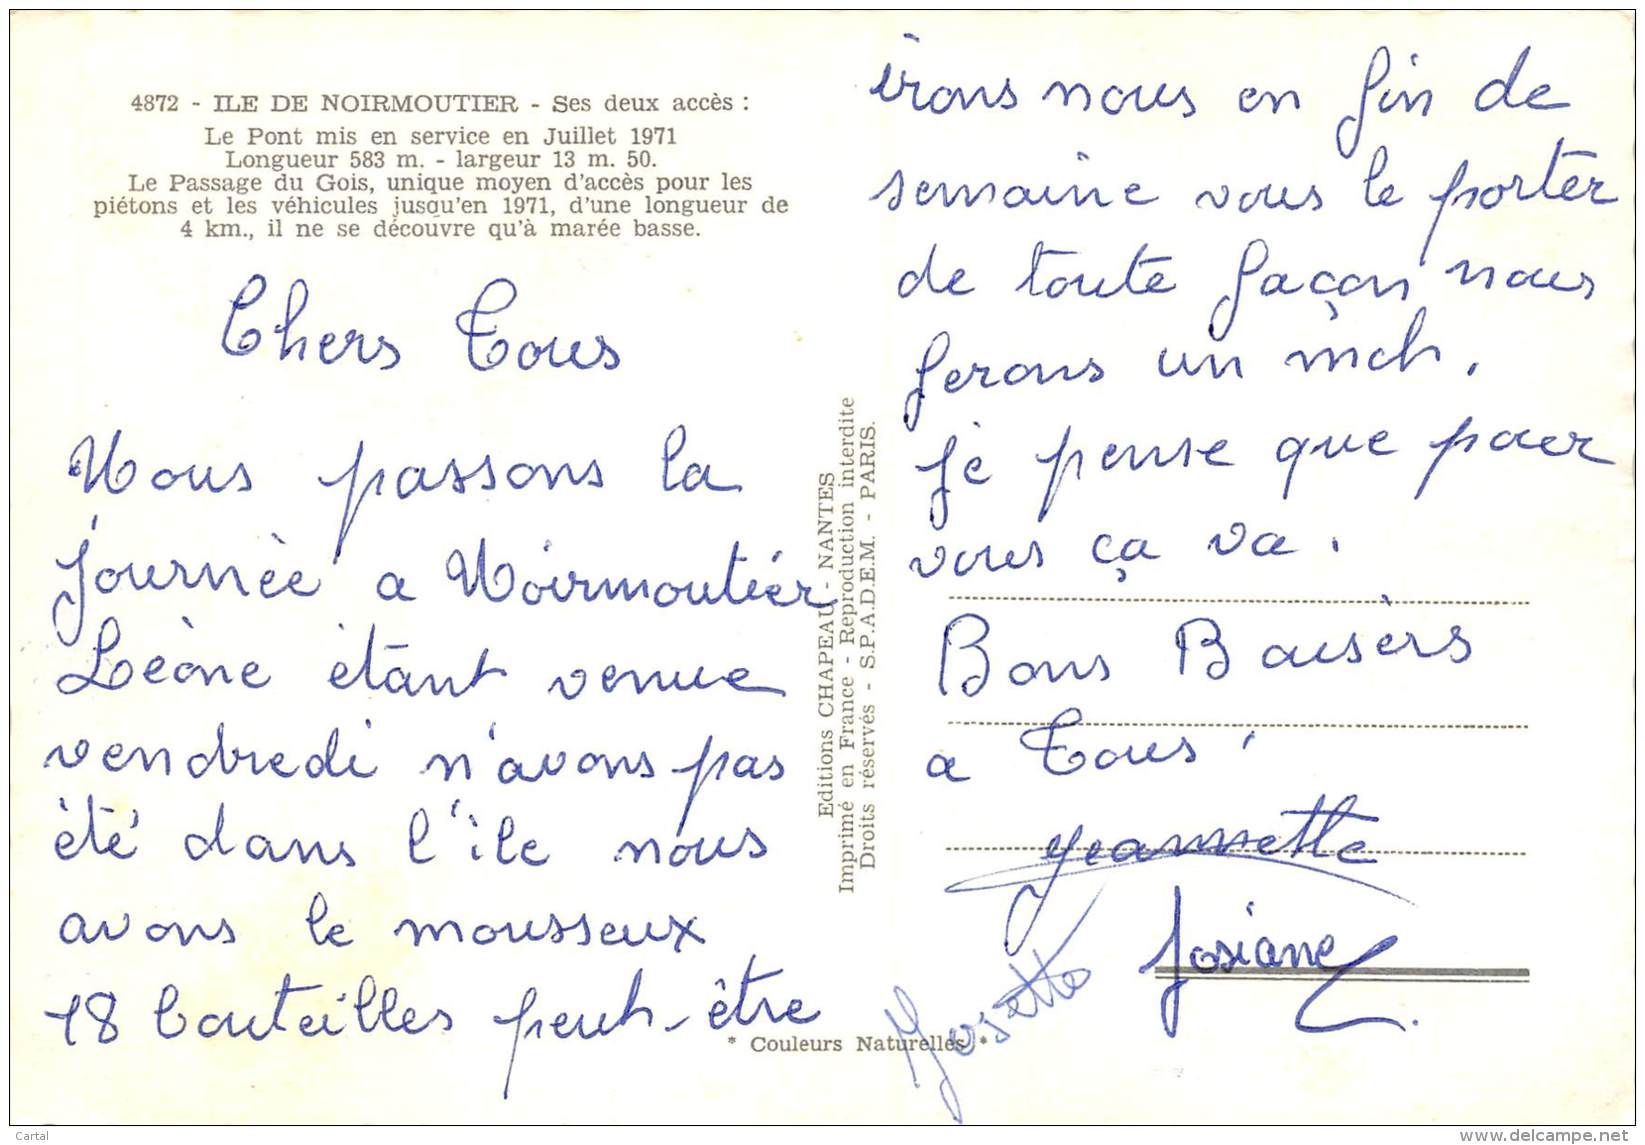 4872 - ILE DE NOIRMOUTIER - Ses deux accès :
Le Pont mis en service en Juillet 1971
Longueur 583 m. - largeur 13 m. 50.
Le Passage du Gois, unique moyen d'accès pour les
piétons et les véhicules jusqu'en 1971, d'une longueur de
4 km., il ne se découvre qu'à marée basse.
Chers Tous
Nous passons la
journèe a Noirmoutier
Lèone ètant venue
vendredi n'avons pas
èté dans l'ile nous
avons le mousseux
18 bouteilles peut-être
irons nous en fin de
semaine vous le porter
de toute façon nous
ferons un mot.
je pense que pour
vous ça va.
Bons Baisèrs
a Tous
Jeannette
Josiane
Josette
Editions CHAPEAU - NANTES
Imprimé en France - Reproduction interdite
Droits réservés - S.P.A.D.E.M. - PARIS.
* Couleurs Naturelles *
Cartal
www.delcampe.net